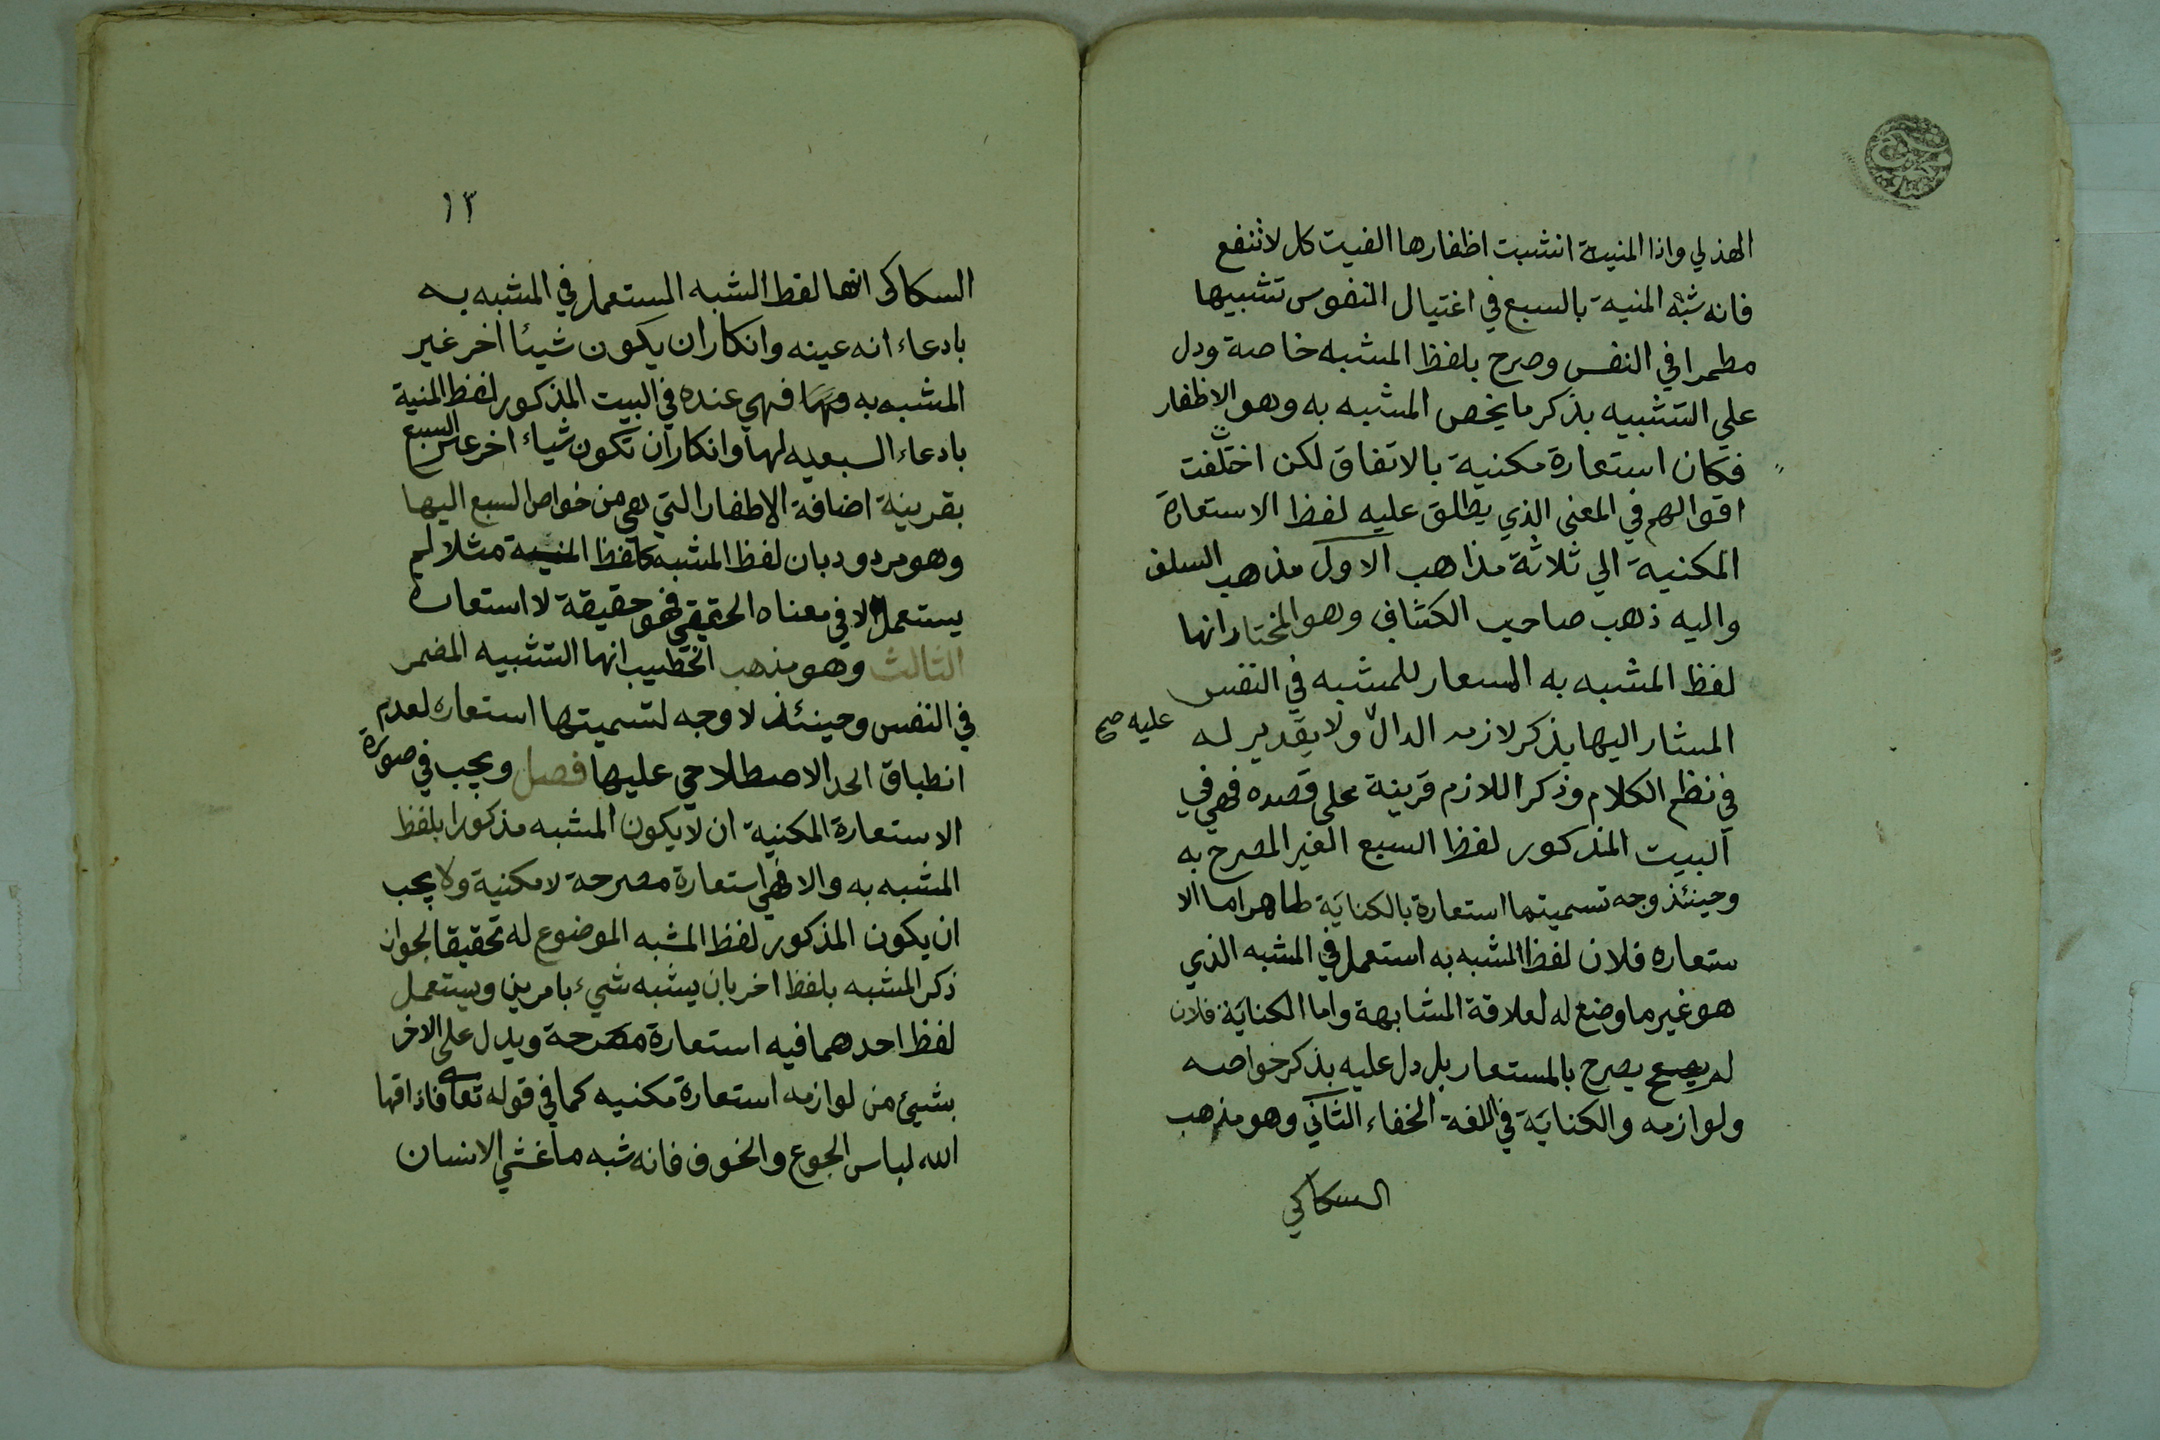 الهذلي واذا المنية انشبت اظفارها الفيت كل لا تنفع
فانه شبه المنية بالسبع في اغتيال النفوس تشبيها
مطمرا في النفس وصرح بلفظ المشبه خاصة ودل
علي التشبيه بذكر ما يخص المشبه به وهو الاظفار
فكان استعارة مكنية بالاتفاق لكن اختلفت
اقوالهم في المعنى الذي يطلق عليه لفظ الاستعارة
المكنية الي ثلاثة مذاهب الاول مذهب السلف
واليه ذهب صاحب الكشاف وهو المختار انها
لفظ المشبه به المسعار للمشبه في النفس
المشار اليها بذكر لازمه الدال ولا تقدير له
عليه صح
في نظم الكلام وذكر اللازم قرينة على قصده فهي في
البيت المذكور لفظ السبع الغير المصرح به
وحينئذ وجه تسميتها استعارة بالكناية ظاهر اما الا
ستعاره فلان لفظ المشبه به استعمل في المشبه الذي
هو غير ما وضع له لعلاقة المشابهة واما الكناية فلان
لم يصرح بالمستعار بل دل عليه بذكر خواصه
ولوازمه والكناية في اللغة الخفاء الثاني وهو مذهب
السكاكي
١٣
السكاكى انها لفظ الشبه المستعمل في المشبه به
بادعاء انه عينه وانكار ان يكون شيئا اخر غير
المشبه به فهي عنده في البيت المذكور لفظ المنية
بادعاء السبعيه لها وانكار ان تكون شياء اخر غير السبع
بقرينة اضافة الاظفار التي هي من خواص السبع اليها
وهو مردود بان لفظ المشبه كلفظ المنية مثلا لم
يستعمل الا في معناه الحقيقي فهو حقيقة لا استعارة
الثالث وهو مذهب الخطيب انها التشبيه المضمر
في النفس وحينئذ لا وجه لتسميتها استعاره لعدم
انطباق الحد الاصطلاحي عليها فصل ويجب في صورة
الاستعارة المكنية ان لا يكون المشبه مذكورا بلفظ
المشبه به والا فهي استعارة مصرحة لا مكنية ولا يجب
ان يكون المذكور لفظ المشبه الموضوع له تحقيقا لجواز
ذكر المشبه بلفظ اخر بان يشبه شيء بامرين ويستعمل
لفظ احدهما فيه استعارة مصرحة ويدل على الاخر
بشيئ من لوازمه استعارة مكنيه كما في قوله تعا فاذاقها
الله لباس الجوع والخوف فانه شبه ما غشي الانسان